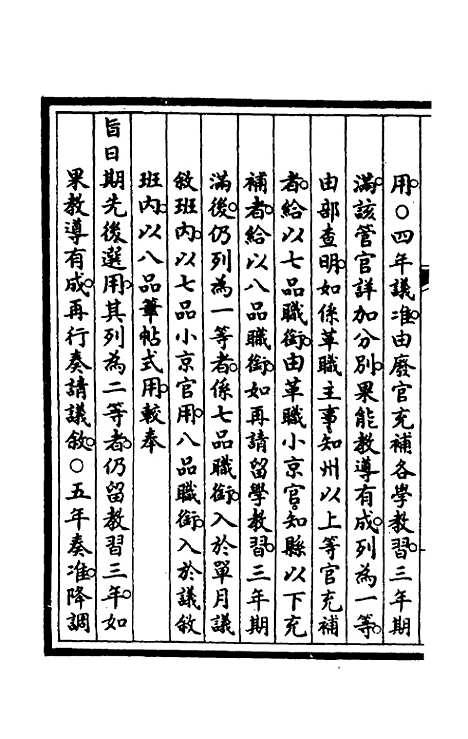 用。○四年議准。由廢官充補各學教習。三年期
滿。該管官詳加分別。果能教導有成。列為一等。
由部查明。如係革職主事。知州以上等官充補
者。給以七品職銜。由革職小京官。知縣以下充
補者。給以八品職銜。如再請留學教習。三年期
滿後。仍列為一等者。係七品職銜。入於單月議
敘班內。以七品小京官用。八品職銜。入於議敘
班內。以八品筆帖式用。較奉
旨日期先後選用。其列為二等者。仍留教習三年。如
果教導有成。再行奏請議敘。○五年奏准。降調